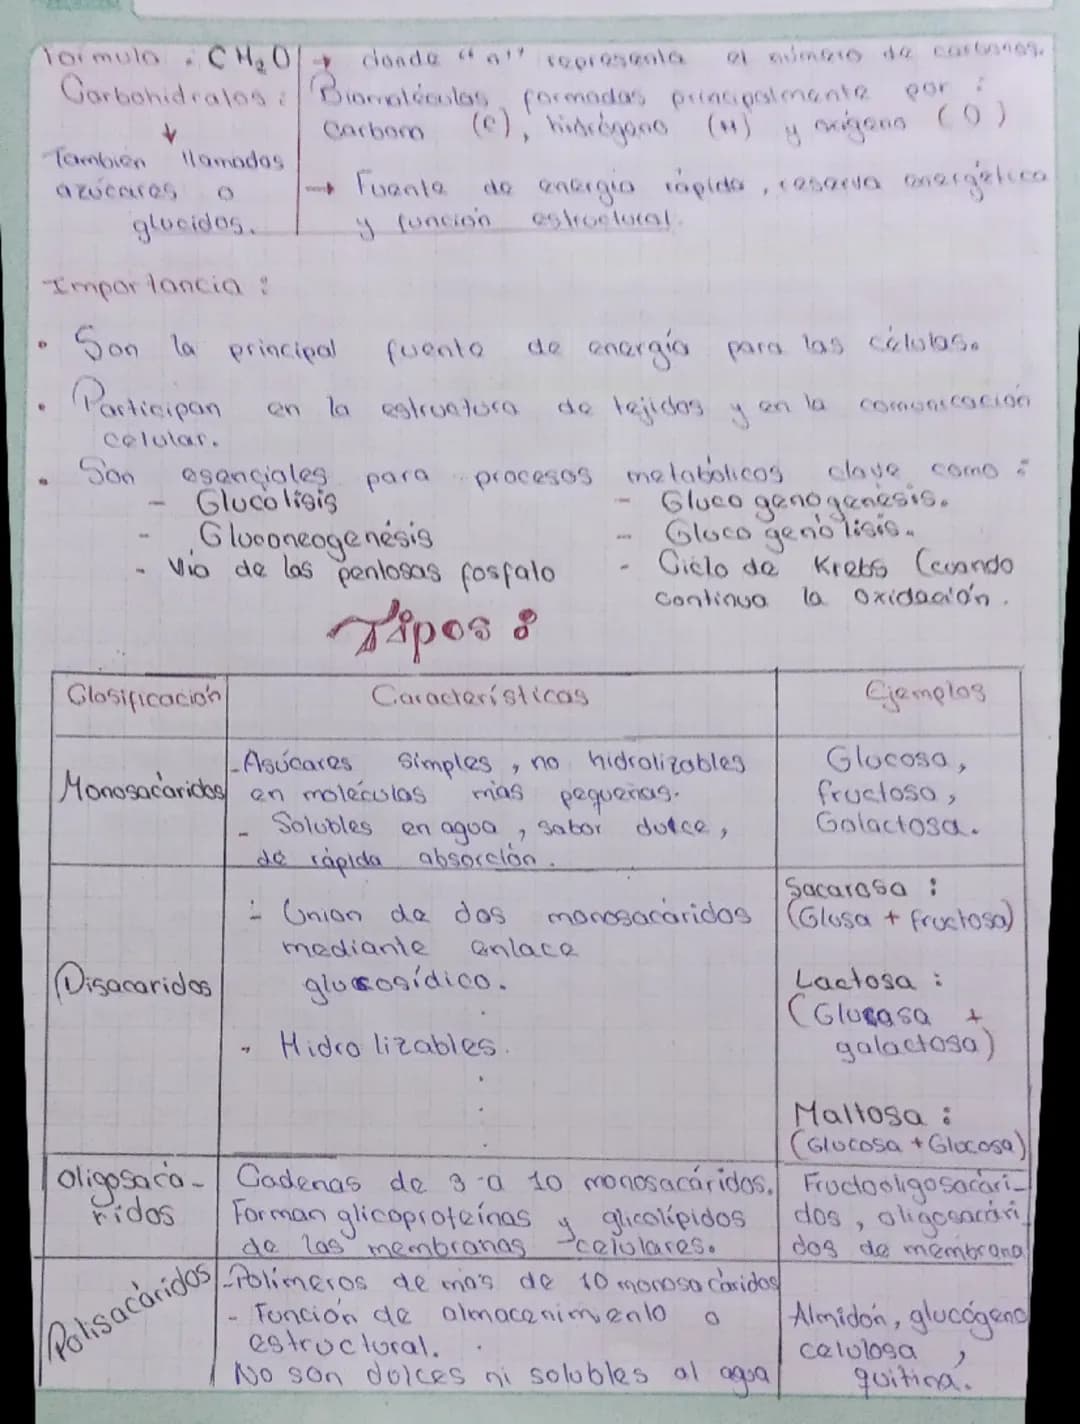 formula : CH₂O → donde "n" representa el número de carbonos.
Carbohidratos : Biomoléculas formadas principalmente por :
Carbono (C), hidrógeno (H) y oxígeno (O)
↓
También llamados
azúcares o
glucidos.
→ Fuente de energia rápida, reserva energética
y función estructural.
Importancia :
• Son la principal fuente de energía para las células.
• Participan en la estructura de tejidos y en la comunicación
celular.
• Son esenciales para procesos metabólicos clave como :
- Glucolisis
- Gluconeogenésis
- Via de las pentosas fosfato
- Glucogenogenésis.
- Glucogenólisis.
- Ciclo de Krebs (cuando
continua la oxidación.
Tipos :
Clasificación Características Ejemplos
Monosacáridos
- Asúcares simples, no hidrolizables
en moléculas más pequeñas.
- Solubles en agua, sabor dulce,
de rápida absorción.
Glucosa,
fructosa,
Galactosa.
Disacaridos
- Union de dos monosacáridos
mediante enlace
glucosídico.
- Hidrolizables.
Sacarosa :
(Glusa + fructosa)
Lactosa :
(Glucosa +
galactosa)
Maltosa :
(Glucosa + Glucosa)
Oligosacá-
ridos
Cadenas de 3 a 10 monosacáridos.
Forman glicoproteínas y glicolípidos
de las membranas celulares.
Fructooligosacári-
dos, oligosacári
dos de membrana
Polisacáridos
- Polímeros de más de 10 monosacáridos
- Función de almacenimiento o
estructural.
No son dolces ni solubles al agua
Almidón, glucógeno
celulosa,
quitina.